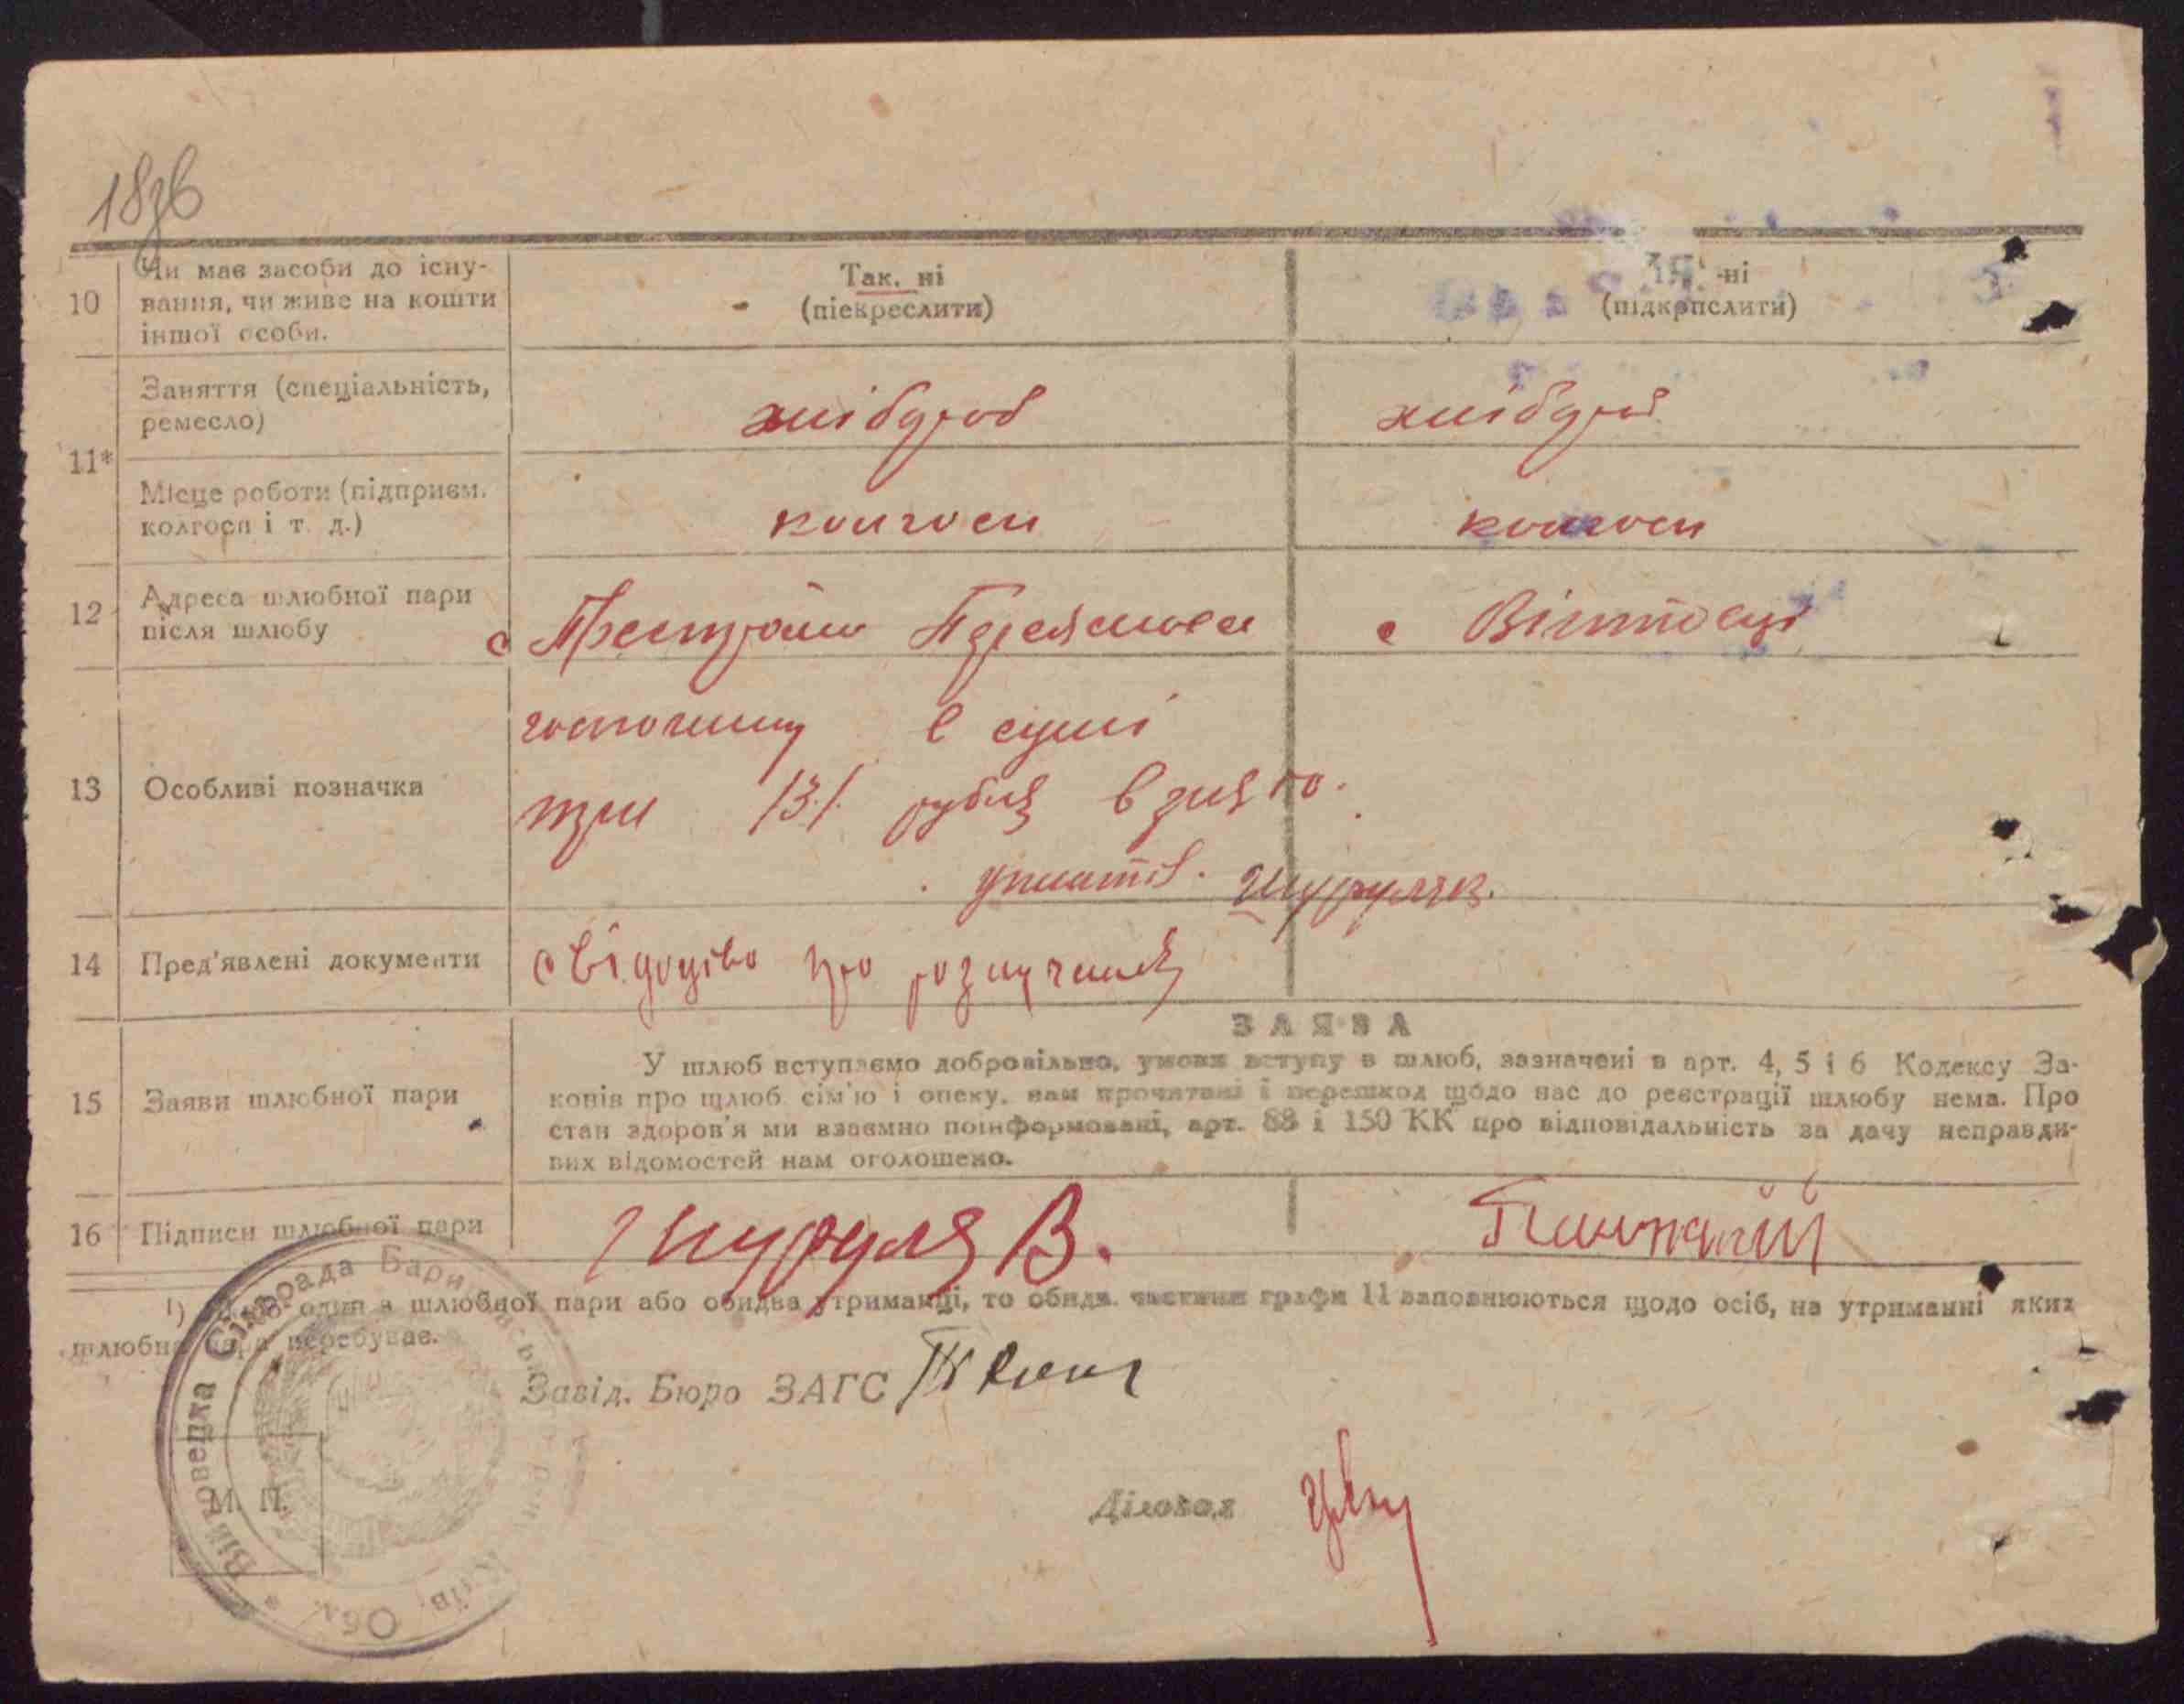 10
Чи має засоби до існу-
вання, чи живе на кошти
іншої особи.
Так. ні
(піекреслити)
-ні
(підкрпслити)
11*
Заняття (спеціальність,
ремесло)
хлібороб
хлібороб
Місце роботи (підприєм.
колгосп і т. д.)
колгосп
колгосп
12
Адреса шлюбної пари
після шлюбу
с
с Війтовці
13
Особливі позначка
гостомиту в сумі
три /3/ рубля взято.
уплатив. Шуруляк.
14
Пред'явлені документи
свідоцтво про розлучення
ЗАЯВА
15
Заяви шлюбної пари
У шлюб вступаємо добровільно, умови вступу в шлюб, зазначені в арт. 4, 5 і 6 Кодексу За-
конів про шлюб сім'ю і опеку, нам прочитані і перешкод щодо нас до реєстрації шлюбу нема. Про
стан здоров'я ми взаємно поінформовані, арт. 88 і 150 КК про відповідальність за дачу неправди-
вих відомостей нам оголошено.
16
Підписи шлюбної пари
Шуруля В.
1) один з шлюбної пари або обидва утриманці, то обидв. частини графи 11 заповнюються щодо осіб, на утриманні яких
шлюбна пара перебуває.
Завід. Бюро ЗАГС
Діловод
М. П.
Війтовецка Сільрада Баришівського р-ну Київ. Обл.